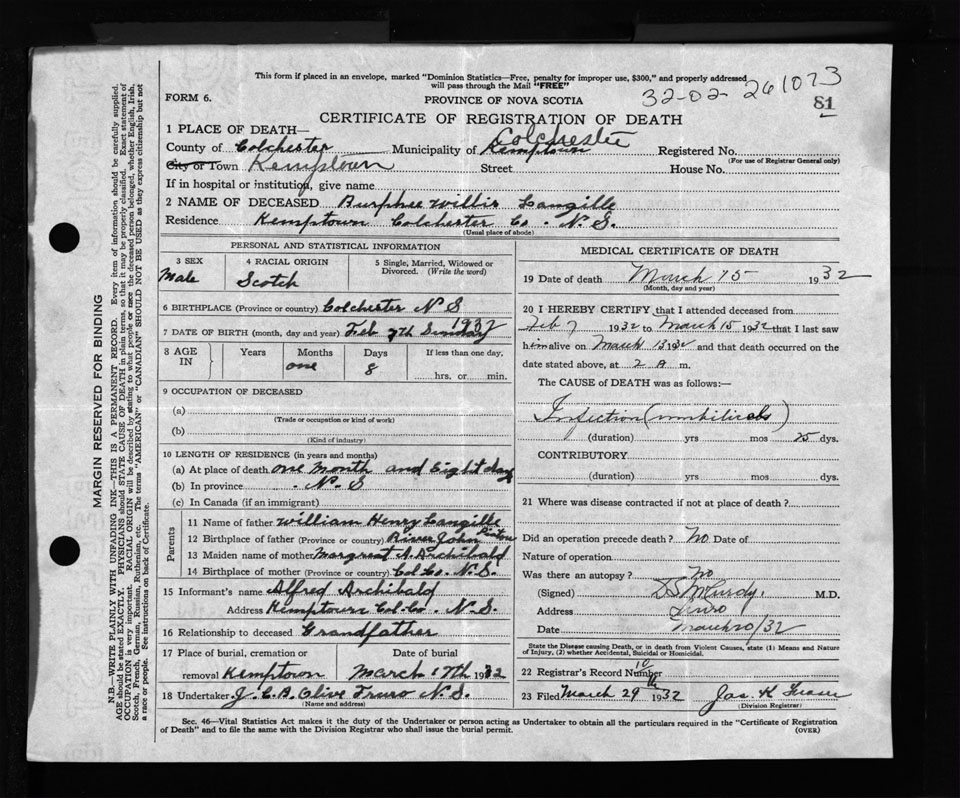 This form if placed in an envelope, marked "Dominion Statistics—Free, penalty for improper use, $300," and properly addressed
will pass through the Mail "FREE"
32-02-261073
FORM 6.
PROVINCE OF NOVA SCOTIA
81
CERTIFICATE OF REGISTRATION OF DEATH
1 PLACE OF DEATH—
Colchester
County of Colchester Municipality of Kemptown Registered No.
(For use of Registrar General only)
City or Town Kemptown Street House No.
If in hospital or institution, give name
2 NAME OF DECEASED Burphee Willis Langille
Residence Kemptown Colchester Co. N.S.
(Usual place of abode)
PERSONAL AND STATISTICAL INFORMATION
3 SEX 4 RACIAL ORIGIN 5 Single, Married, Widowed or
Divorced. (Write the word)
Male Scotch
6 BIRTHPLACE (Province or country) Colchester N S
7 DATE OF BIRTH (month, day and year) Feb 7th Sunday 1932
8 AGE IN Years Months Days If less than one day.
one 8 hrs. or min.
9 OCCUPATION OF DECEASED
(a)
(Trade or occupation or kind of work)
(b)
(Kind of industry)
10 LENGTH OF RESIDENCE (in years and months)
(a) At place of death one month and Eight days
(b) In province N.S
(c) In Canada (if an immigrant)
Parents
11 Name of father William Henry Langille
12 Birthplace of father (Province or country) River John Pictou
13 Maiden name of mother Margreat A. Archibald
14 Birthplace of mother (Province or country) Col Co. N.S.
15 Informant's name Alfred Archibald
Address Kemptown Col. Co. N.S.
16 Relationship to deceased Grandfather
17 Place of burial, cremation or Date of burial
removal Kemptown March 17th 1932
18 Undertaker J. C. B. Olive Truro N.S.
(Name and address)
MEDICAL CERTIFICATE OF DEATH
19 Date of death March 15 1932
(Month, day and year)
20 I HEREBY CERTIFY that I attended deceased from
Feb 7 1932 to March 15 1932 that I last saw
him alive on March 13 1932 and that death occurred on the
date stated above, at 2 A m.
The CAUSE of DEATH was as follows:—
Infection (umbilicals)
(duration) yrs mos 25 dys.
CONTRIBUTORY
(duration) yrs mos dys.
21 Where was disease contracted if not at place of death?
Did an operation precede death? No Date of
Nature of operation
Was there an autopsy? No
(Signed) D S McCurdy. M.D.
Address Truro
Date March 20/32
State the Disease causing Death, or in death from Violent Causes, state (1) Means and Nature
of Injury, (2) whether Accidental, Suicidal or Homicidal.
22 Registrar's Record Number 10
23 Filed March 29th 1932 Jas. K
(Division Registrar)
Sec. 46—Vital Statistics Act makes it the duty of the Undertaker or person acting as Undertaker to obtain all the particulars required in the "Certificate of Registration
of Death" and to file the same with the Division Registrar who shall issue the burial permit.
(OVER)
MARGIN RESERVED FOR BINDING
N.B.—WRITE PLAINLY WITH UNFADING INK—THIS IS A PERMANENT RECORD. Every item of information should be carefully supplied.
AGE should be stated EXACTLY. PHYSICIANS should STATE CAUSE OF DEATH in plain terms, so that it may be properly classified. Exact statement of
OCCUPATION is very important. RACIAL ORIGIN will be described by stating to what people or race the deceased person belonged, whether English, Irish,
Scotch, French, German, Russian, Ruthenian, etc. The terms "AMERICAN" or "CANADIAN" SHOULD NOT BE USED as they express citizenship but not
a race or people. See instructions on back of Certificate.